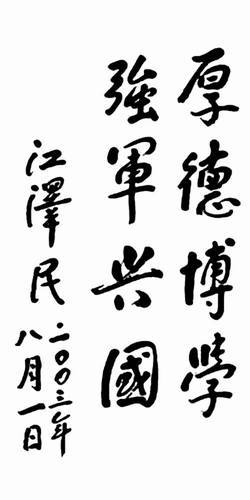 厚德博學
強軍興國
江澤民
二〇〇三年
八月一日